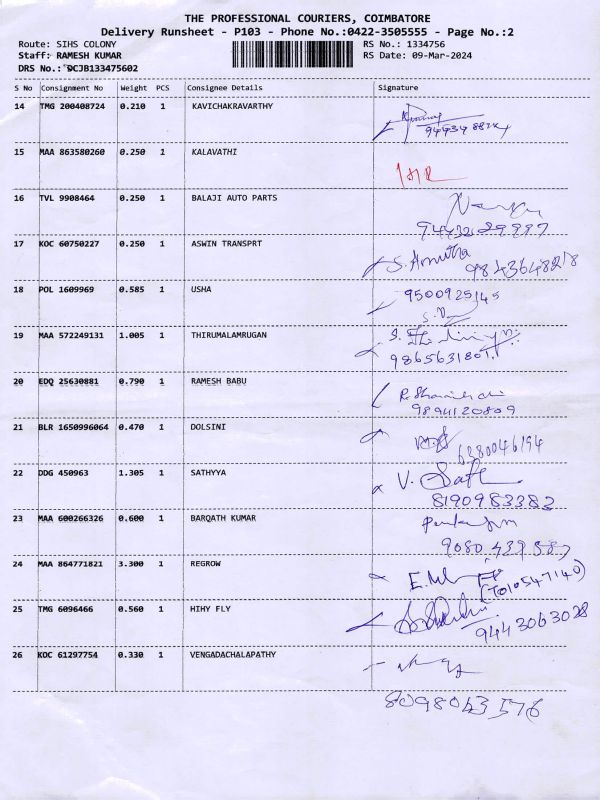 THE PROFESSIONAL COURIERS, COIMBATORE
Delivery Runsheet - P103 - Phone No.:0422-3505555 - Page No.:2
Route: SIHS COLONY RS No.: 1334756
Staff: RAMESH KUMAR RS Date: 09-Mar-2024
DRS No.: DCJB133475602
S No Consignment No Weight PCS Consignee Details Signature
14 TMG 200408724 0.210 1 KAVICHAKRAVARTHY
15 MAA 863580260 0.250 1 KALAVATHI
16 TVL 9908464 0.250 1 BALAJI AUTO PARTS
17 KOC 60750227 0.250 1 ASWIN TRANSPRT S. Amutha
9843648218
18 POL 1609969 0.585 1 USHA 9500925145
19 MAA 572249131 1.005 1 THIRUMALAMRUGAN
9865631801
20 EDQ 25630881 0.790 1 RAMESH BABU
9894120809
21 BLR 1650996064 0.470 1 DOLSINI
6380046194
22 DDG 450963 1.305 1 SATHYYA V.
8190983382
23 MAA 600266326 0.600 1 BARQATH KUMAR
24 MAA 864771821 3.300 1 REGROW
25 TMG 6096466 0.560 1 HIHY FLY
9443063028
26 KOC 61297754 0.330 1 VENGADACHALAPATHY
8098043576